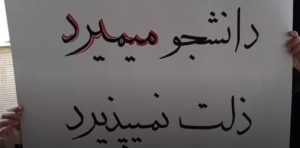 دانشجو میمیرد
ذلت نمیپذیرد